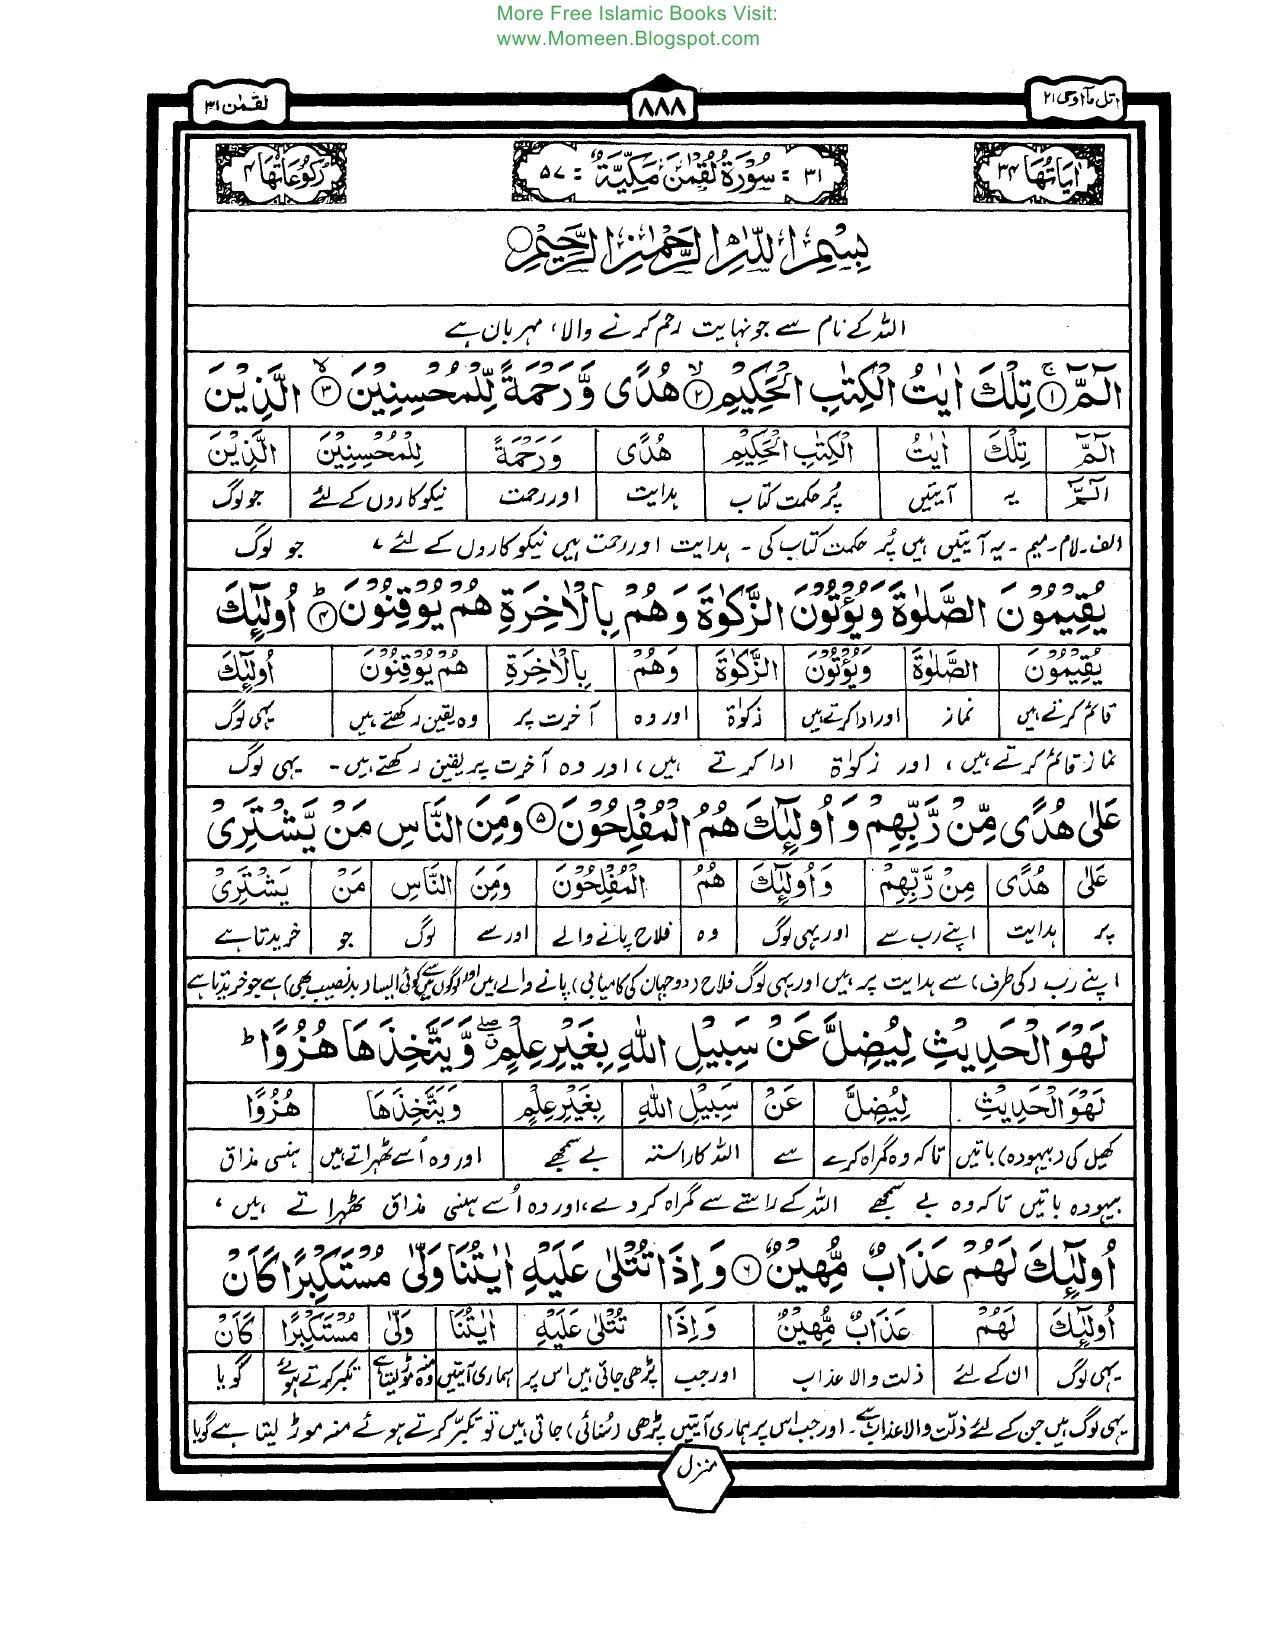 More Free Islamic Books Visit:
www.Momeen.Blogspot.com
اتل مآ اوحی ۲۱
۸۸۸
لقمٰن ۳۱
اٰیَاتُهَا ۳۴
۳۱ = سُوْرَةُ لُقْمٰنَ مَکِّیَّةٌ = ۵۷
رُکُوْعَاتُهَا ۴
بِسْمِ اللّٰهِ الرَّحْمٰنِ الرَّحِیْمِ
اللہ کے نام سے جو نہایت رحم کرنے والا، مہربان ہے
الٓمّٓ ۱ تِلْكَ اٰیٰتُ الْکِتٰبِ الْحَکِیْمِ ۲ هُدًی وَّرَحْمَةً لِّلْمُحْسِنِیْنَ ۳ الَّذِیْنَ
الٓمّٓ تِلْكَ اٰیٰتُ الْکِتٰبِ الْحَکِیْمِ هُدًی وَرَحْمَةً لِلْمُحْسِنِیْنَ الَّذِیْنَ
الٓمّٓ یہ آیتیں پُر حکمت کتاب ہدایت اور رحمت نیکوکاروں کے لئے جو لوگ
الف-لام-میم - یہ آیتیں ہیں پُر حکمت کتاب کی - ہدایت اور رحمت ہیں نیکوکاروں کے لئے، جو لوگ
یُقِیْمُوْنَ الصَّلٰوةَ وَیُؤْتُوْنَ الزَّکٰوةَ وَهُمْ بِالْاٰخِرَةِ هُمْ یُوْقِنُوْنَ ۴ اُولٰٓئِكَ
یُقِیْمُوْنَ الصَّلٰوةَ وَیُؤْتُوْنَ الزَّکٰوةَ وَهُمْ بِالْاٰخِرَةِ هُمْ یُوْقِنُوْنَ اُولٰٓئِكَ
قائم کرتے ہیں نماز اور ادا کرتے ہیں زکوٰۃ اور وہ آخرت پر وہ یقین رکھتے ہیں یہی لوگ
نماز قائم کرتے ہیں، اور زکوٰۃ ادا کرتے ہیں، اور وہ آخرت پر یقین رکھتے ہیں - یہی لوگ
عَلٰی هُدًی مِّنْ رَّبِّهِمْ وَاُولٰٓئِكَ هُمُ الْمُفْلِحُوْنَ ۵ وَمِنَ النَّاسِ مَنْ یَّشْتَرِیْ
عَلٰی هُدًی مِنْ رَّبِّهِمْ وَاُولٰٓئِكَ هُمُ الْمُفْلِحُوْنَ وَمِنَ النَّاسِ مَنْ یَشْتَرِیْ
پر ہدایت اپنے رب سے اور یہی لوگ وہ فلاح پانے والے اور سے لوگ جو خریدتا ہے
اپنے رب (کی طرف) سے ہدایت پر ہیں اور یہی لوگ فلاح (دو جہان کی کامیابی) پانے والے ہیں اور لوگوں میں سے کوئی ایسا (بدنصیب بھی) ہے جو خریدتا ہے
لَهْوَ الْحَدِیْثِ لِیُضِلَّ عَنْ سَبِیْلِ اللّٰهِ بِغَیْرِ عِلْمٍ وَّیَتَّخِذَهَا هُزُوًا ط
لَهْوَ الْحَدِیْثِ لِیُضِلَّ عَنْ سَبِیْلِ اللّٰهِ بِغَیْرِ عِلْمٍ وَیَتَّخِذَهَا هُزُوًا
کھیل کی (بیہودہ) باتیں تاکہ وہ گمراہ کرے سے اللہ کا راستہ بے سمجھے اور وہ اُسے ٹھہراتے ہیں ہنسی مذاق
بیہودہ باتیں تاکہ وہ بے سمجھے اللہ کے راستے سے گمراہ کر دے، اور وہ اُسے ہنسی مذاق ٹھہراتے ہیں،
اُولٰٓئِكَ لَهُمْ عَذَابٌ مُّهِیْنٌ ۶ وَاِذَا تُتْلٰی عَلَیْهِ اٰیٰتُنَا وَلّٰی مُسْتَکْبِرًا کَاَنْ
اُولٰٓئِكَ لَهُمْ عَذَابٌ مُّهِیْنٌ وَاِذَا تُتْلٰی عَلَیْهِ اٰیٰتُنَا وَلّٰی مُسْتَکْبِرًا کَاَنْ
یہی لوگ ان کے لئے ذلت والا عذاب اور جب پڑھی جاتی ہیں اس پر ہماری آیتیں وہ منہ موڑ لیتا ہے تکبر کرتے ہوئے گویا
یہی لوگ ہیں جن کے لئے ذلّت والا عذاب ہے - اور جب اس پر ہماری آیتیں پڑھی (سُنائی) جاتی ہیں تو تکبّر کرتے ہوئے منہ موڑ لیتا ہے گویا
منزل